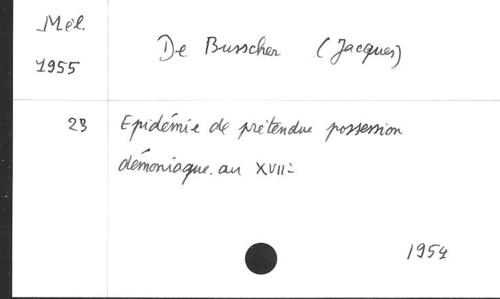 Mél.
1955
De Busscher (Jacques)
23 Epidémie de prétendue possession
démoniaque. au XVIIe
1954